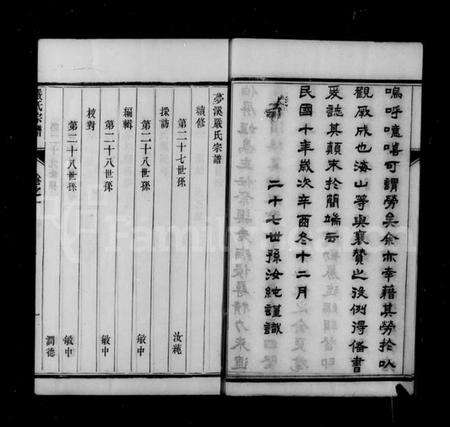 嗚呼噫嘻可謂勞矣余亦幸藉其勞於以
觀厥成也海山等與襄贊之後例得備書
爰誌其顛末於簡端云
民國十年歲次辛酉冬十二月
二十七世孫汝純謹識
夢溪嚴氏宗譜
續修
第二十七世孫 汝純
採訪
第二十八世孫 敏中
編輯
第二十八世孫 敏中
校對
第二十八世孫 敏中
潤德
嚴氏宗譜 卷之一